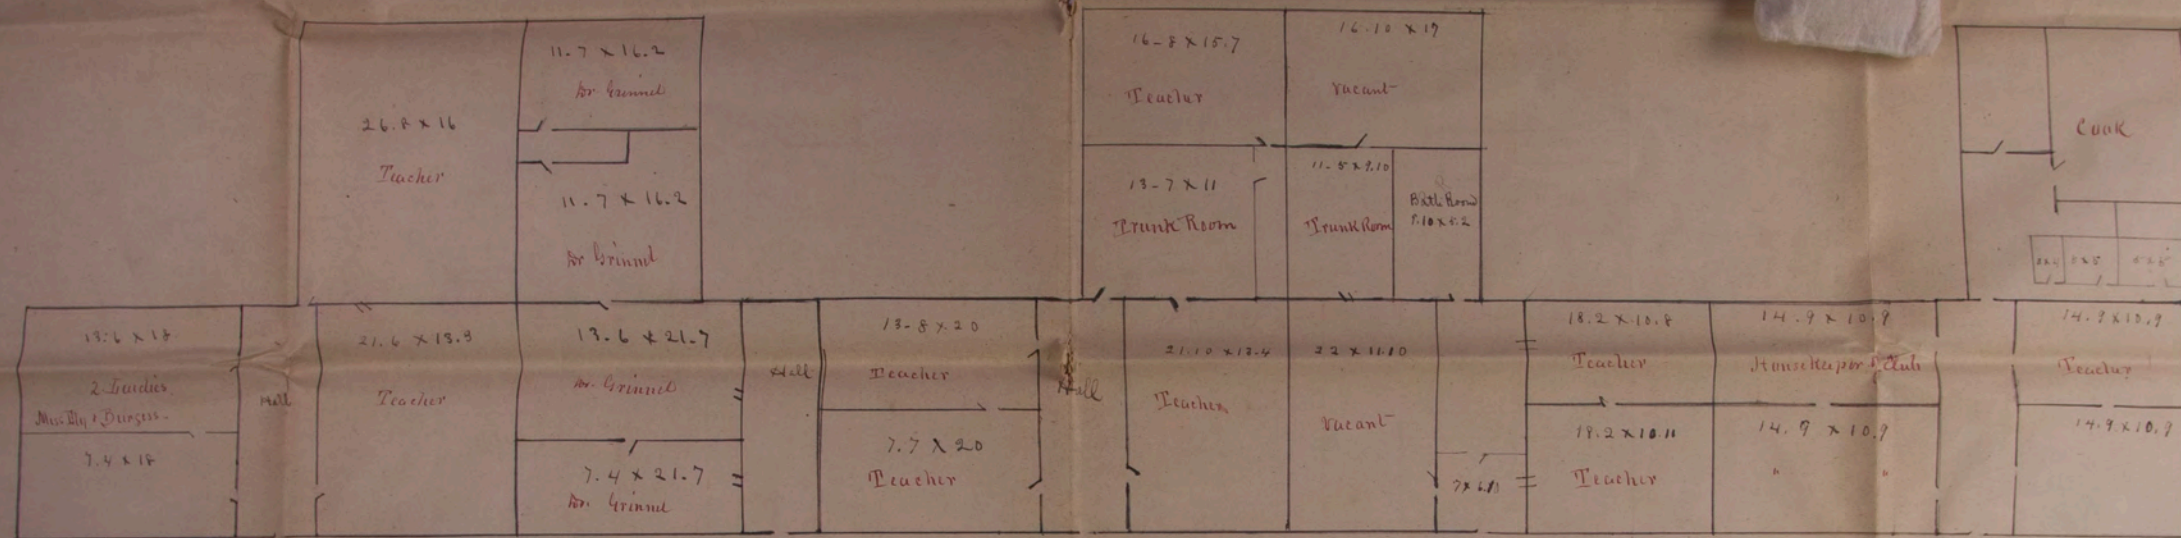 26.8 x 16
Teacher
11.7 x 16.2
Dr Grinnel
11.7 x 16.2
Dr Grinnel
16-8 x 15.7
Teacher
16.10 x 17
Vacant
13-7 x 11
Trunk Room
11-5 x 9.10
Trunk Room
Bath Room
Cook
5x5
13.6 x 18
2 Ladies
Miss Ely & Burgess
7.4 x 18
Hall
21.6 x 13.9
Teacher
13.6 x 21.7
Dr. Grinnel
7.4 x 21.7
Dr. Grinnel
Hall
13-8 x 20
Teacher
7.7 x 20
Teacher
Hall
21.10 x 13.4
Teacher
22 x 11.10
Vacant
18.2 x 10.8
Teacher
14.9 x 10.9
HouseKeeper Club
19.2 x 10.11
Teacher
14.9 x 10.9
" "
14.9 x 10.9
Teacher
14.9 x 10.9